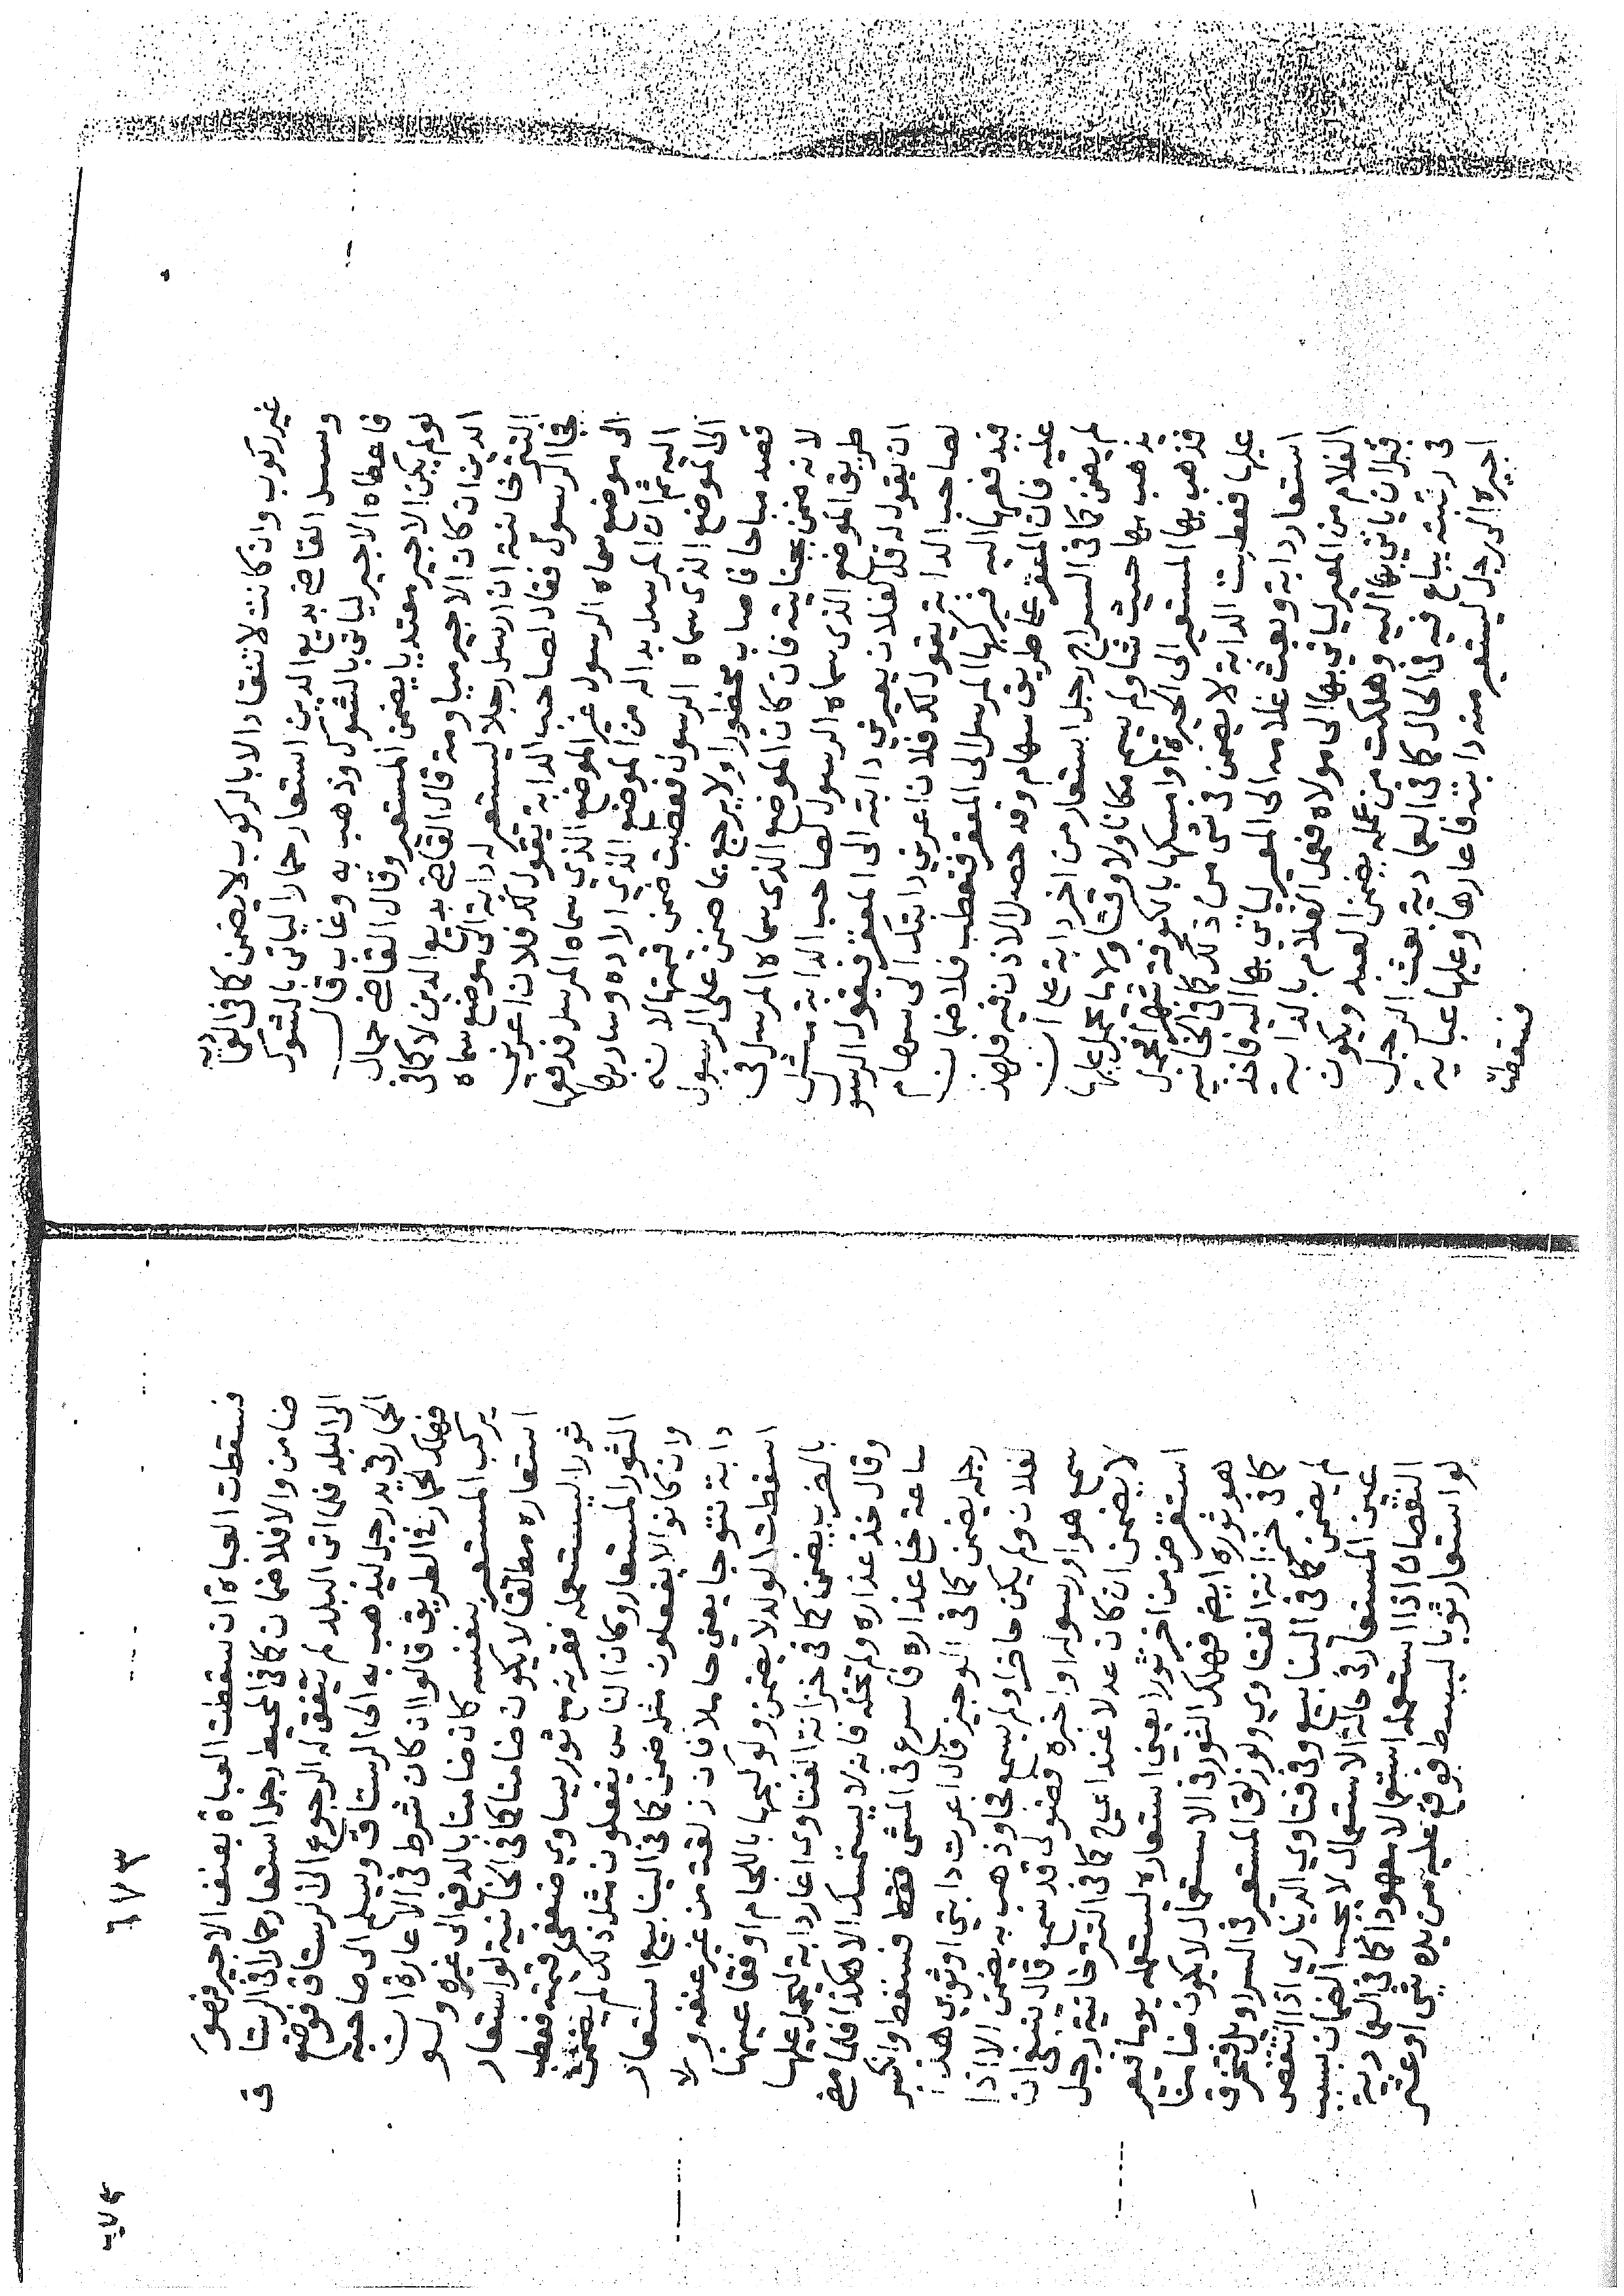 غير ركوب وان كانت لا تنقاد الا بالركوب لا يضمن كما في العمادية
وسئل القاضي بديع الدين استعار حمارا لياتي بالشوك
فاعطاه الاجير لياتي بالشوك وذهب به وغاب قال
لو لم يكن الاجير معتديا يضمن المستعير وقال القاضي جمال
الدين ان كان الاجير مياومة قال القاضي بديع الدين لا كما في
التترخانية ان ارسل رجلا ليستعير له دابة الى موضع سماه
فجا الرسول فقال لصاحب الدابة يقول لك فلان اعرني
الى موضع سماه الرسول غير الموضع الذي سماه المرسل فدفعها
اليه ثم ان المرسل بدا له من الموضع الذي اراده وسار بها
الى الموضع الذي سماه الرسول فعطبت ضمن قيمتها لانه
قصد مباحا فاصاب محظورا ولا يرجع بما ضمن على الرسول
لانه ضمن بجنايته فان كان الموضع الذي سماه المرسل في
طريق الموضع الذي سماه الرسول لصاحب الدابة مثل
ان يقول له قل لفلان يعيرني دابته الى المعقر فيقول الرسو
لصاحب الدابة يقول لك فلان اعرني دابتك الى سهام
فيدفعها اليه فيركبها المرسل الى المعقر فتعطب فلا ضمان
عليه فان المعقر على طريق سهام وقد حصل الاذن فيه فلهذ
لم يضمن كما في السراج رجل استعار من اخر دابة على ان
يذهب بها حيث شا ولم يسم مكانا ولا وقتا ولا ما يحمل عليها
فذهب بها المستعير الى الحيرة او امسكها بالكوفة شهرا يحمل
عليها فعطبت الدابة لا يضمن في شي من ذلك كما في الخانية
استعار دابة وبعث غلامه الى المعير لياتي بها اليه فاخذ
الغلام من المعير لياتي بها الى مولاه فعمل الغلام بالدابة
قبل ان ياتي بها اليه وهلكت من عمله يضمن العبد ويكون
في رقبته يباع فيه في الحال كما في العمادية بعث الرجل
اجيره الى رجل ليستعير منه دابته فاعارها وعليها عباية
فسقطت
٦٧٣
فسقطت العباة ان سقطت العباة بعنف الاجير فهو
ضامن والا فلا ضمان كما في المحيط رجل استعار حمارا في الرستاق
الى البلد فلما اتى البلد لم يتفق له الرجوع الى الرستاق فوضع
الحمار في يد رجل ليذهب به الى الرستاق ويسلم الى صاحبه
فهلك الحمار في الطريق قالوا ان كان شرط في الاعارة ان
يركب المستعير بنفسه كان ضامنا بالدفع الى غيره ولو
استعاره مطلقا لا يكون ضامنا كما في الخانية لو استعار
ثورا ليستعمله فقرنه مع ثور يساوي ضعفي قيمته فعطب
الثور المستعار وكان الناس يفعلون مثل ذلك لم يضمن
وان كانوا لا يفعلون مثله ضمن كما في الينابيع استعار
دابة نتوجا يعني حاملا فان زلقت من غير عنفه ولا
اسقطت الولد لا يضمن ولو كبحها باللجام او فقا عينها
بالضرب يضمن كما في خزانة الفتاوى اعار دابة ليحمل عليها
وقال خذ عذاره ولم تخله فانه لا يستمسك الا هكذا فلما مضى
ساعة خلع عذاره فاسرع في المشي فسقط وانكسر
رجله يضمن كما في الوجيز قال اعرت دابتي او ثوبي هذا
لفلان ولم يكن حاضرا ولم يسمع فجا وذهب به يضمن الا اذا
سمع هو او رسوله او اخبره فضولي قد سمع قال ينبغي ان
لا يضمن ان كان عدلا عند ابي ح كما في التترخانية رجل
استقرض من اخر ثورا يعني استعاره ليستعمله يوما فيعير
هو ثوره ايض فهلك الثور في الاستعمال لا يكون ضامنا
كما في خزانة الفتاوي ولو زلق المستعير في السراويل فتخرق
لم يضمن كما في الينابيع وفي فتاوي الديناري اذا انتقص
عين المستعار في حالة الاستعمال لا يجب الضمان بسبب
النقصان اذا استعمله استعمالا معهودا كما في العمادية
لو استعار ثوبا ليبسط فوقع عليه من يده شي او عثر